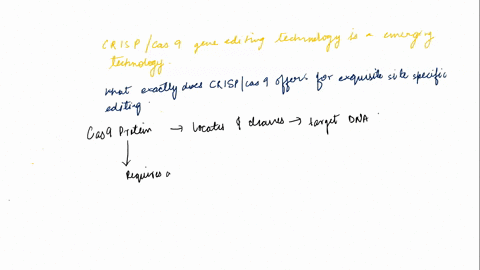 CRISP/cas 9 gene editing technology is a emerging
technology.
What exactly does CRISP/cas 9 offers for exquisite site specific
editing
Cas9 Protein → locates & cleaves → target DNA
Requires a